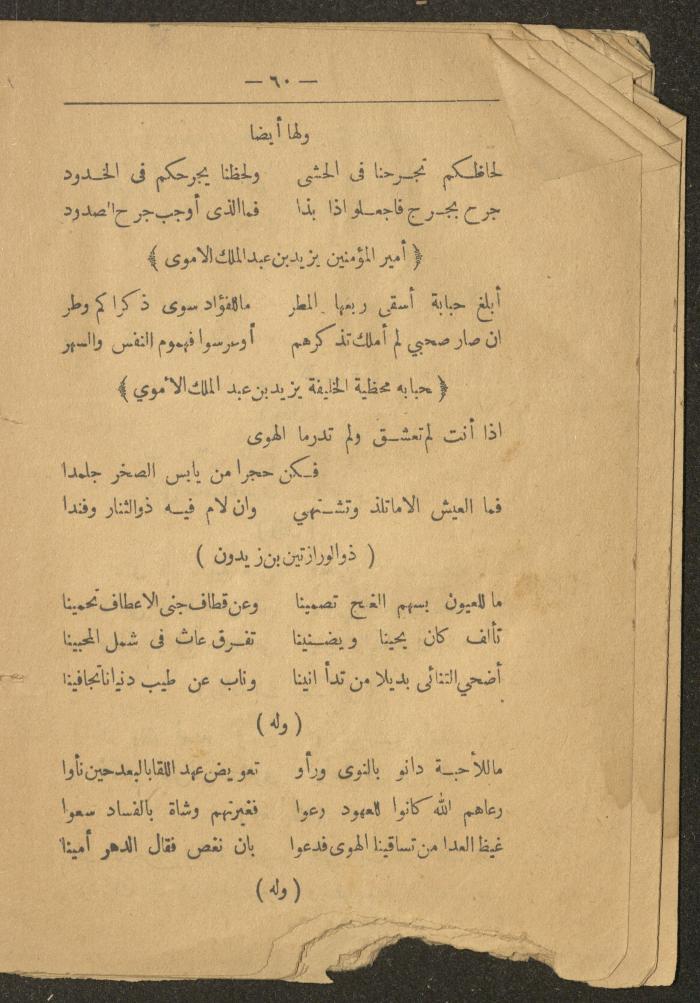 — ٦٠ —
ولها أيضا
لحاظكم تجرحنا فى الحشى ولحظنا يجرحكم فى الخدود
جرح بجرح فاجعلو اذا بذا فما الذى أوجب جرح الصدود
﴿ أمير المؤمنين يزيد بن عبد الملك الاموى ﴾
أبلغ حبابة أسقى ربعها المطر ما للفؤاد سوى ذكراكم وطر
ان صار صحبي لم أملك تذكرهم أو عرسوا فهموم النفس والسهر
﴿ حبابه محظية الخليفة يزيد بن عبد الملك الأموي ﴾
اذا أنت لم تعشق ولم تدر ما الهوى
فكن حجرا من يابس الصخر جلمدا
فما العيش الا ما تلذ وتشتهي وان لام فيه ذو الثنار وفندا
( ذو الورازتين بن زيدون )
ما للعيون بسهم الغنج تصمينا وعن قطاف جنى الاعطاف تحمينا
تألف كان يحينا ويضنينا تفرق عاث فى شمل المحبينا
أضحي التنائى بديلا من تدأ انينا وناب عن طيب دنيانا تجافينا
( وله )
ما للأحبة دانو بالنوى ورأو تعويض عهد اللقا بالبعد حين نأوا
رعاهم الله كانوا للعهود رعوا فغيرتهم وشاة بالفساد سعوا
غيظ العدا من تساقينا الهوى فدعوا بان نغص فقال الدهر أمينا
( وله )